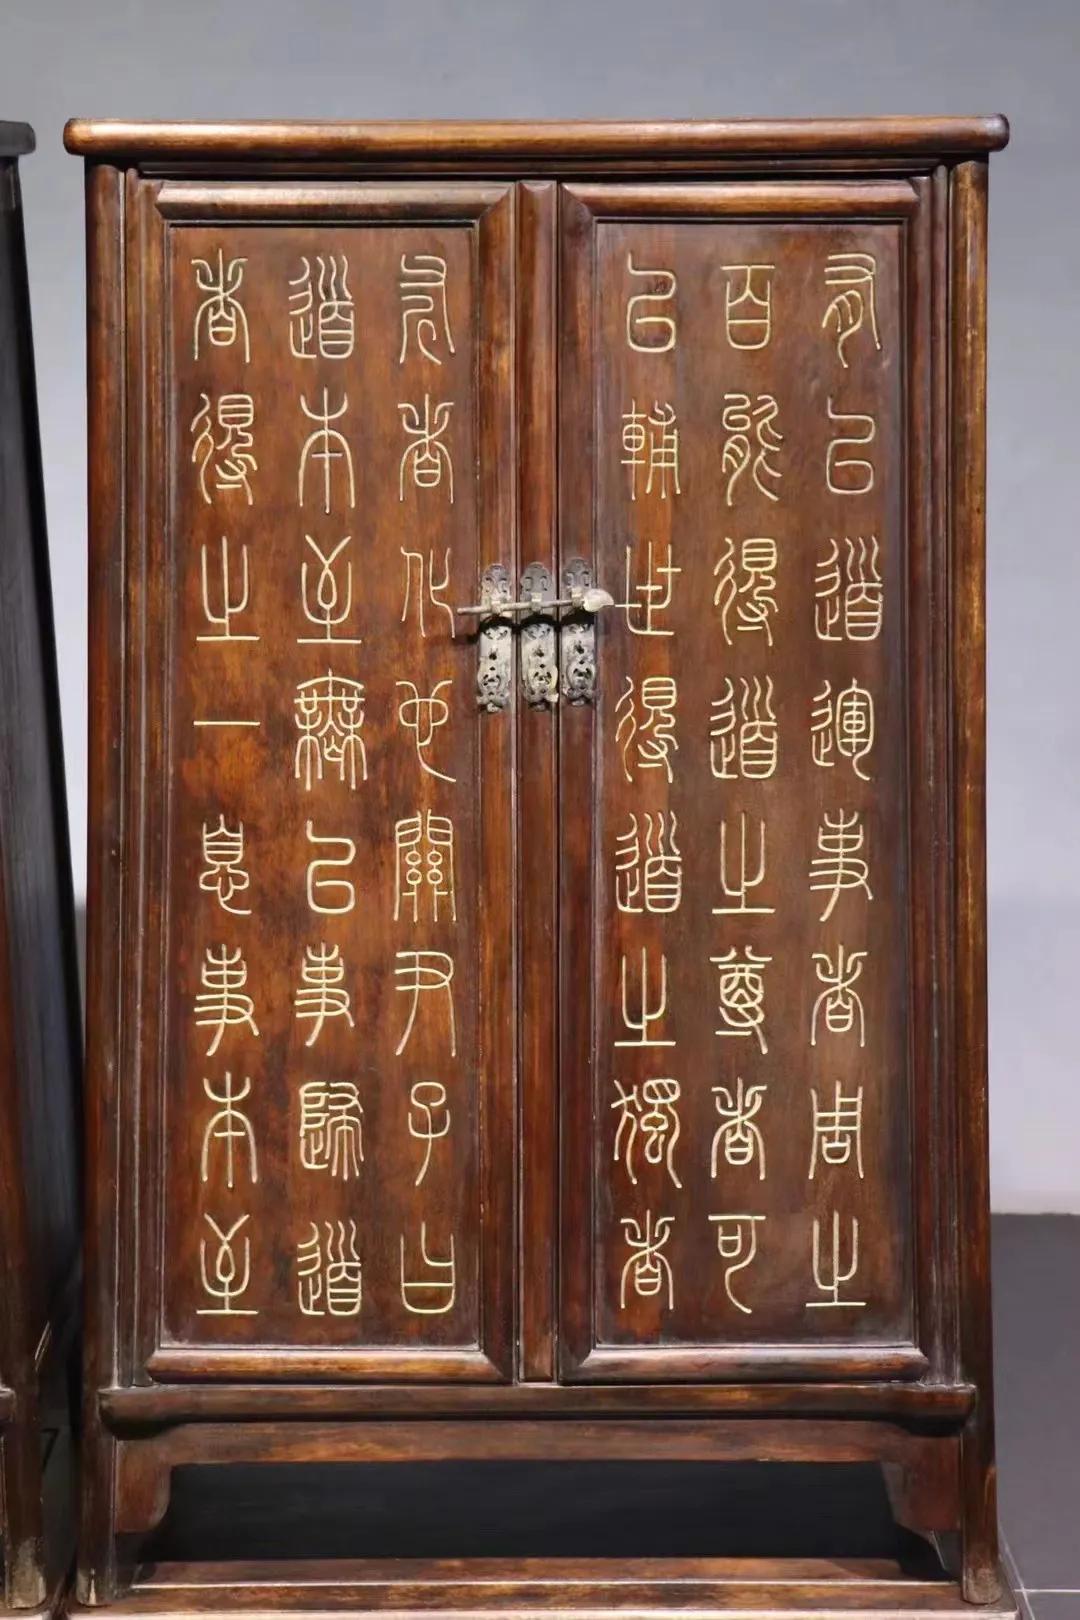 者化也關尹子曰
道本至無以事歸道
者得之一息事本至
有以道運事者周之
百為得道之尊者可
以輔世得道之獨者